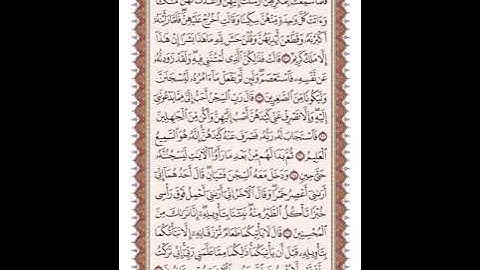 فَلَمَّا سَمِعَتْ بِمَكْرِهِنَّ أَرْسَلَتْ إِلَيْهِنَّ وَأَعْتَدَتْ لَهُنَّ مُتَّكَـًٔا
وَءَاتَتْ كُلَّ وَٰحِدَةٍ مِّنْهُنَّ سِكِّينًا وَقَالَتِ ٱخْرُجْ عَلَيْهِنَّ ۖ فَلَمَّا رَأَيْنَهُۥٓ
أَكْبَرْنَهُۥ وَقَطَّعْنَ أَيْدِيَهُنَّ وَقُلْنَ حَٰشَ لِلَّهِ مَا هَٰذَا بَشَرًا إِنْ هَٰذَآ
إِلَّا مَلَكٌ كَرِيمٌ ۝٣١ قَالَتْ فَذَٰلِكُنَّ ٱلَّذِى لُمْتُنَّنِى فِيهِ ۖ وَلَقَدْ رَٰوَدتُّهُۥ
عَن نَّفْسِهِۦ فَٱسْتَعْصَمَ ۖ وَلَئِن لَّمْ يَفْعَلْ مَآ ءَامُرُهُۥ لَيُسْجَنَنَّ
وَلَيَكُونًا مِّنَ ٱلصَّٰغِرِينَ ۝٣٢ قَالَ رَبِّ ٱلسِّجْنُ أَحَبُّ إِلَىَّ مِمَّا يَدْعُونَنِىٓ
إِلَيْهِ ۖ وَإِلَّا تَصْرِفْ عَنِّى كَيْدَهُنَّ أَصْبُ إِلَيْهِنَّ وَأَكُن مِّنَ ٱلْجَٰهِلِينَ
۝٣٣ فَٱسْتَجَابَ لَهُۥ رَبُّهُۥ فَصَرَفَ عَنْهُ كَيْدَهُنَّ ۚ إِنَّهُۥ هُوَ ٱلسَّمِيعُ
ٱلْعَلِيمُ ۝٣٤ ثُمَّ بَدَا لَهُم مِّنۢ بَعْدِ مَا رَأَوُا۟ ٱلْـَٔايَٰتِ لَيَسْجُنُنَّهُۥ
حَتَّىٰ حِينٍ ۝٣٥ وَدَخَلَ مَعَهُ ٱلسِّجْنَ فَتَيَانِ ۖ قَالَ أَحَدُهُمَآ إِنِّىٓ
أَرَىٰنِىٓ أَعْصِرُ خَمْرًا ۖ وَقَالَ ٱلْـَٔاخَرُ إِنِّىٓ أَرَىٰنِىٓ أَحْمِلُ فَوْقَ رَأْسِى
خُبْزًا تَأْكُلُ ٱلطَّيْرُ مِنْهُ ۖ نَبِّئْنَا بِتَأْوِيلِهِۦٓ ۖ إِنَّا نَرَىٰكَ مِنَ
ٱلْمُحْسِنِينَ ۝٣٦ قَالَ لَا يَأْتِيكُمَا طَعَامٌ تُرْزَقَانِهِۦٓ إِلَّا نَبَّأْتُكُمَا
بِتَأْوِيلِهِۦ قَبْلَ أَن يَأْتِيَكُمَا ۚ ذَٰلِكُمَا مِمَّا عَلَّمَنِى رَبِّىٓ ۚ إِنِّى تَرَكْتُ